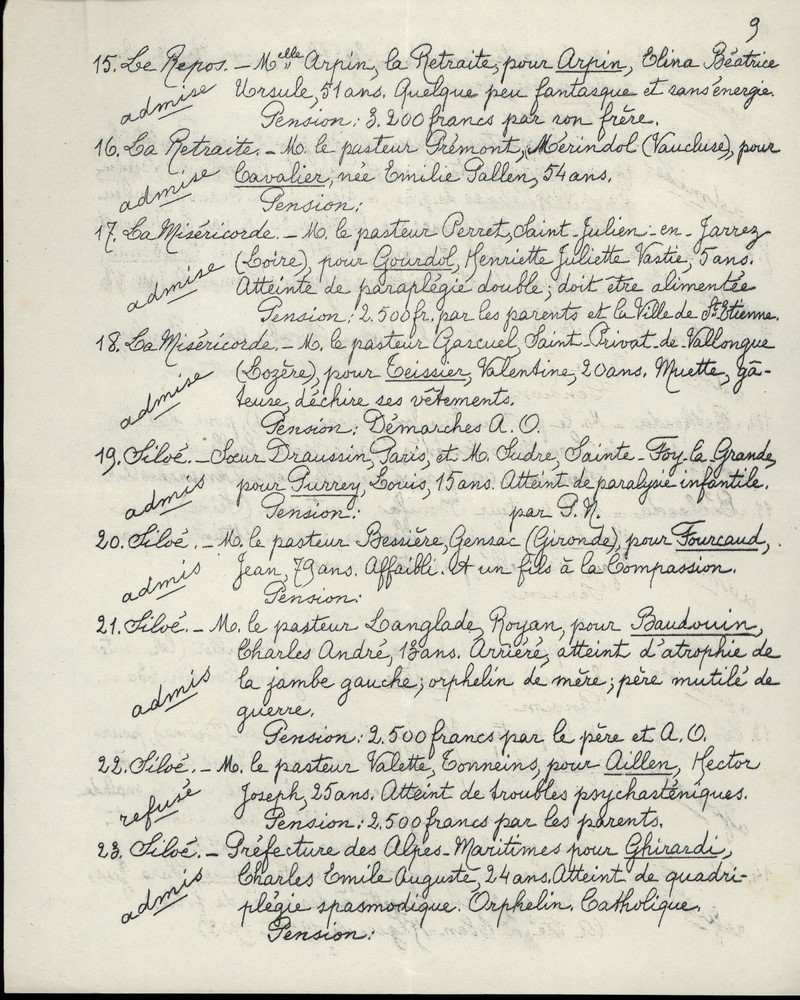 9
15. Le Repos. - Melle Arpin, la Retraite, pour Arpin, Elina Béatrice
admise Ursule, 51 ans. Quelque peu fantasque et sans énergie.
Pension: 3.200 francs par son frère.
16. La Retraite. - M. le pasteur Prémont, Mérindol (Vaucluse), pour
admise Cavalier, née Emilie Pallen, 54 ans.
Pension:
17. La Miséricorde. - M. le pasteur Perret, Saint-Julien-en-Jarrez
(Loire), pour Gourdol, Henriette Juliette Vastie, 5 ans.
admise Atteinte de paraplégie double; doit être alimentée
Pension: 2.500 fr. par les parents et la Ville de St Etienne.
18. La Miséricorde. - M. le pasteur Gascuel, Saint-Privat-de-Vallongue
(Lozère), pour Teissier, Valentine, 20 ans. Muette, gâ-
admise teuse, déchire ses vêtements.
Pension: Démarches A.O.
19. Siloé. - Sœur Draussin, Paris, et M. Sudre, Sainte-Foy-la-Grande,
admis pour Purrey, Louis, 15 ans. Atteint de paralysie infantile.
Pension: par P.N.
20. Siloé. - M. le pasteur Bessière, Gensac (Gironde), pour Fourcaud,
admis Jean, 79 ans. Affaibli. A un fils à la Compassion.
Pension:
21. Siloé. - M. le pasteur Langlade, Royan, pour Baudouin,
Charles André, ans. Arriéré, atteint d'atrophie de
admis la jambe gauche; orphelin de mère; père mutilé de
guerre.
Pension: 2.500 francs par le père et A.O.
22. Siloé. - M. le pasteur Valette, Tonneins, pour Aillen, Hector
refusé Joseph, 25 ans. Atteint de troubles psychasténiques.
Pension: 2.500 francs par les parents.
23. Siloé. - Préfecture des Alpes-Maritimes pour Ghirardi,
Charles Emile Auguste, 24 ans. Atteint de quadri-
admis plégie spasmodique. Orphelin. Catholique.
Pension: